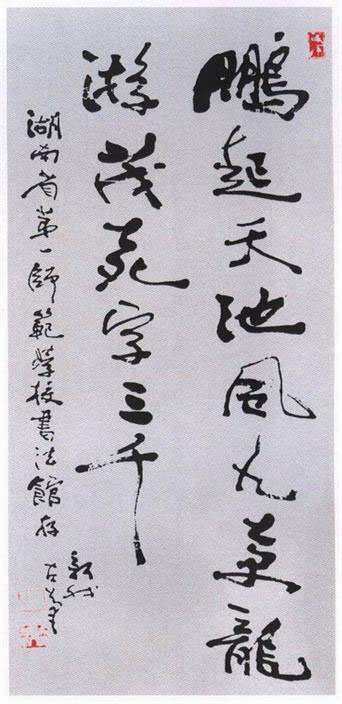 鵬起天池風九萬龍
游茂苑字三千
湖南省第一師範學校書法館存
書